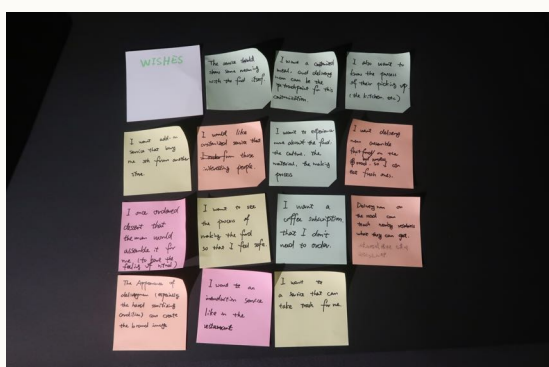 WISHES
The service should
show some meaning
with the food itself.
I want a customized
meal, and delivery
man can be the
touchpoint for this
customization.
I also want to
know the process
of their picking up
I want add-on
service that buy
me sth from another
time.
I would like
customized service that
from those
interesting people.
I want to experience
more about the food.
the culture, the
material, the making
process.
I want delivery
men assemble
food on the
so I can
the fresh ones.
I once ordered
desert that
the man would
assemble it for
me (to have the
feeling of ritual)
I want to see
the process of
making the food
so that I feel safe.
I want a
coffee subscription
that I don't
need to order.
Delivery man on
the road can
what they can get.
The Appearance of
deliveryman (especially
the hand sanitizing
condition) can create
the brand image
I want to an
introduction service
like in the
restaurant
I want to
a service that can
take trash for me.